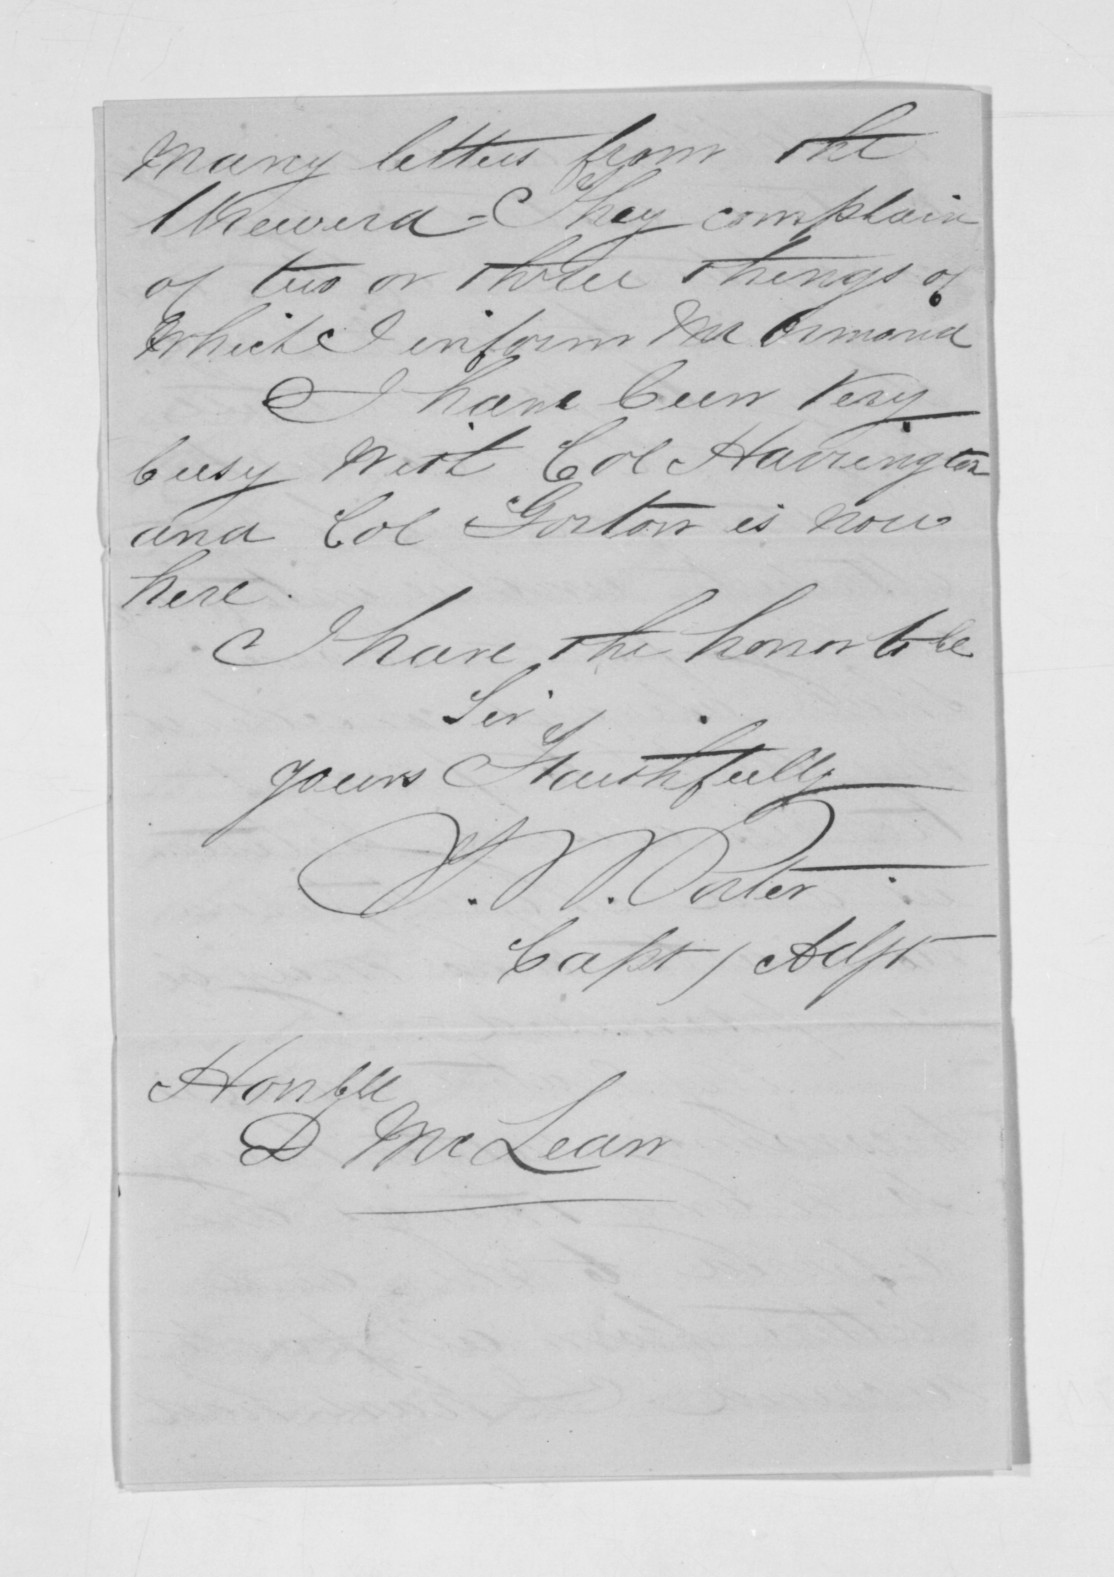 many letters from the
Urewera - They complain
of two or three things of
which I inform Mr Ormond
I have been very
busy with Col Harrington
and Col Gorton is now
here.
I have the honor to be
Sir
yours Faithfully
T. W. Porter
Capt / Adjt
Honble
D McLean